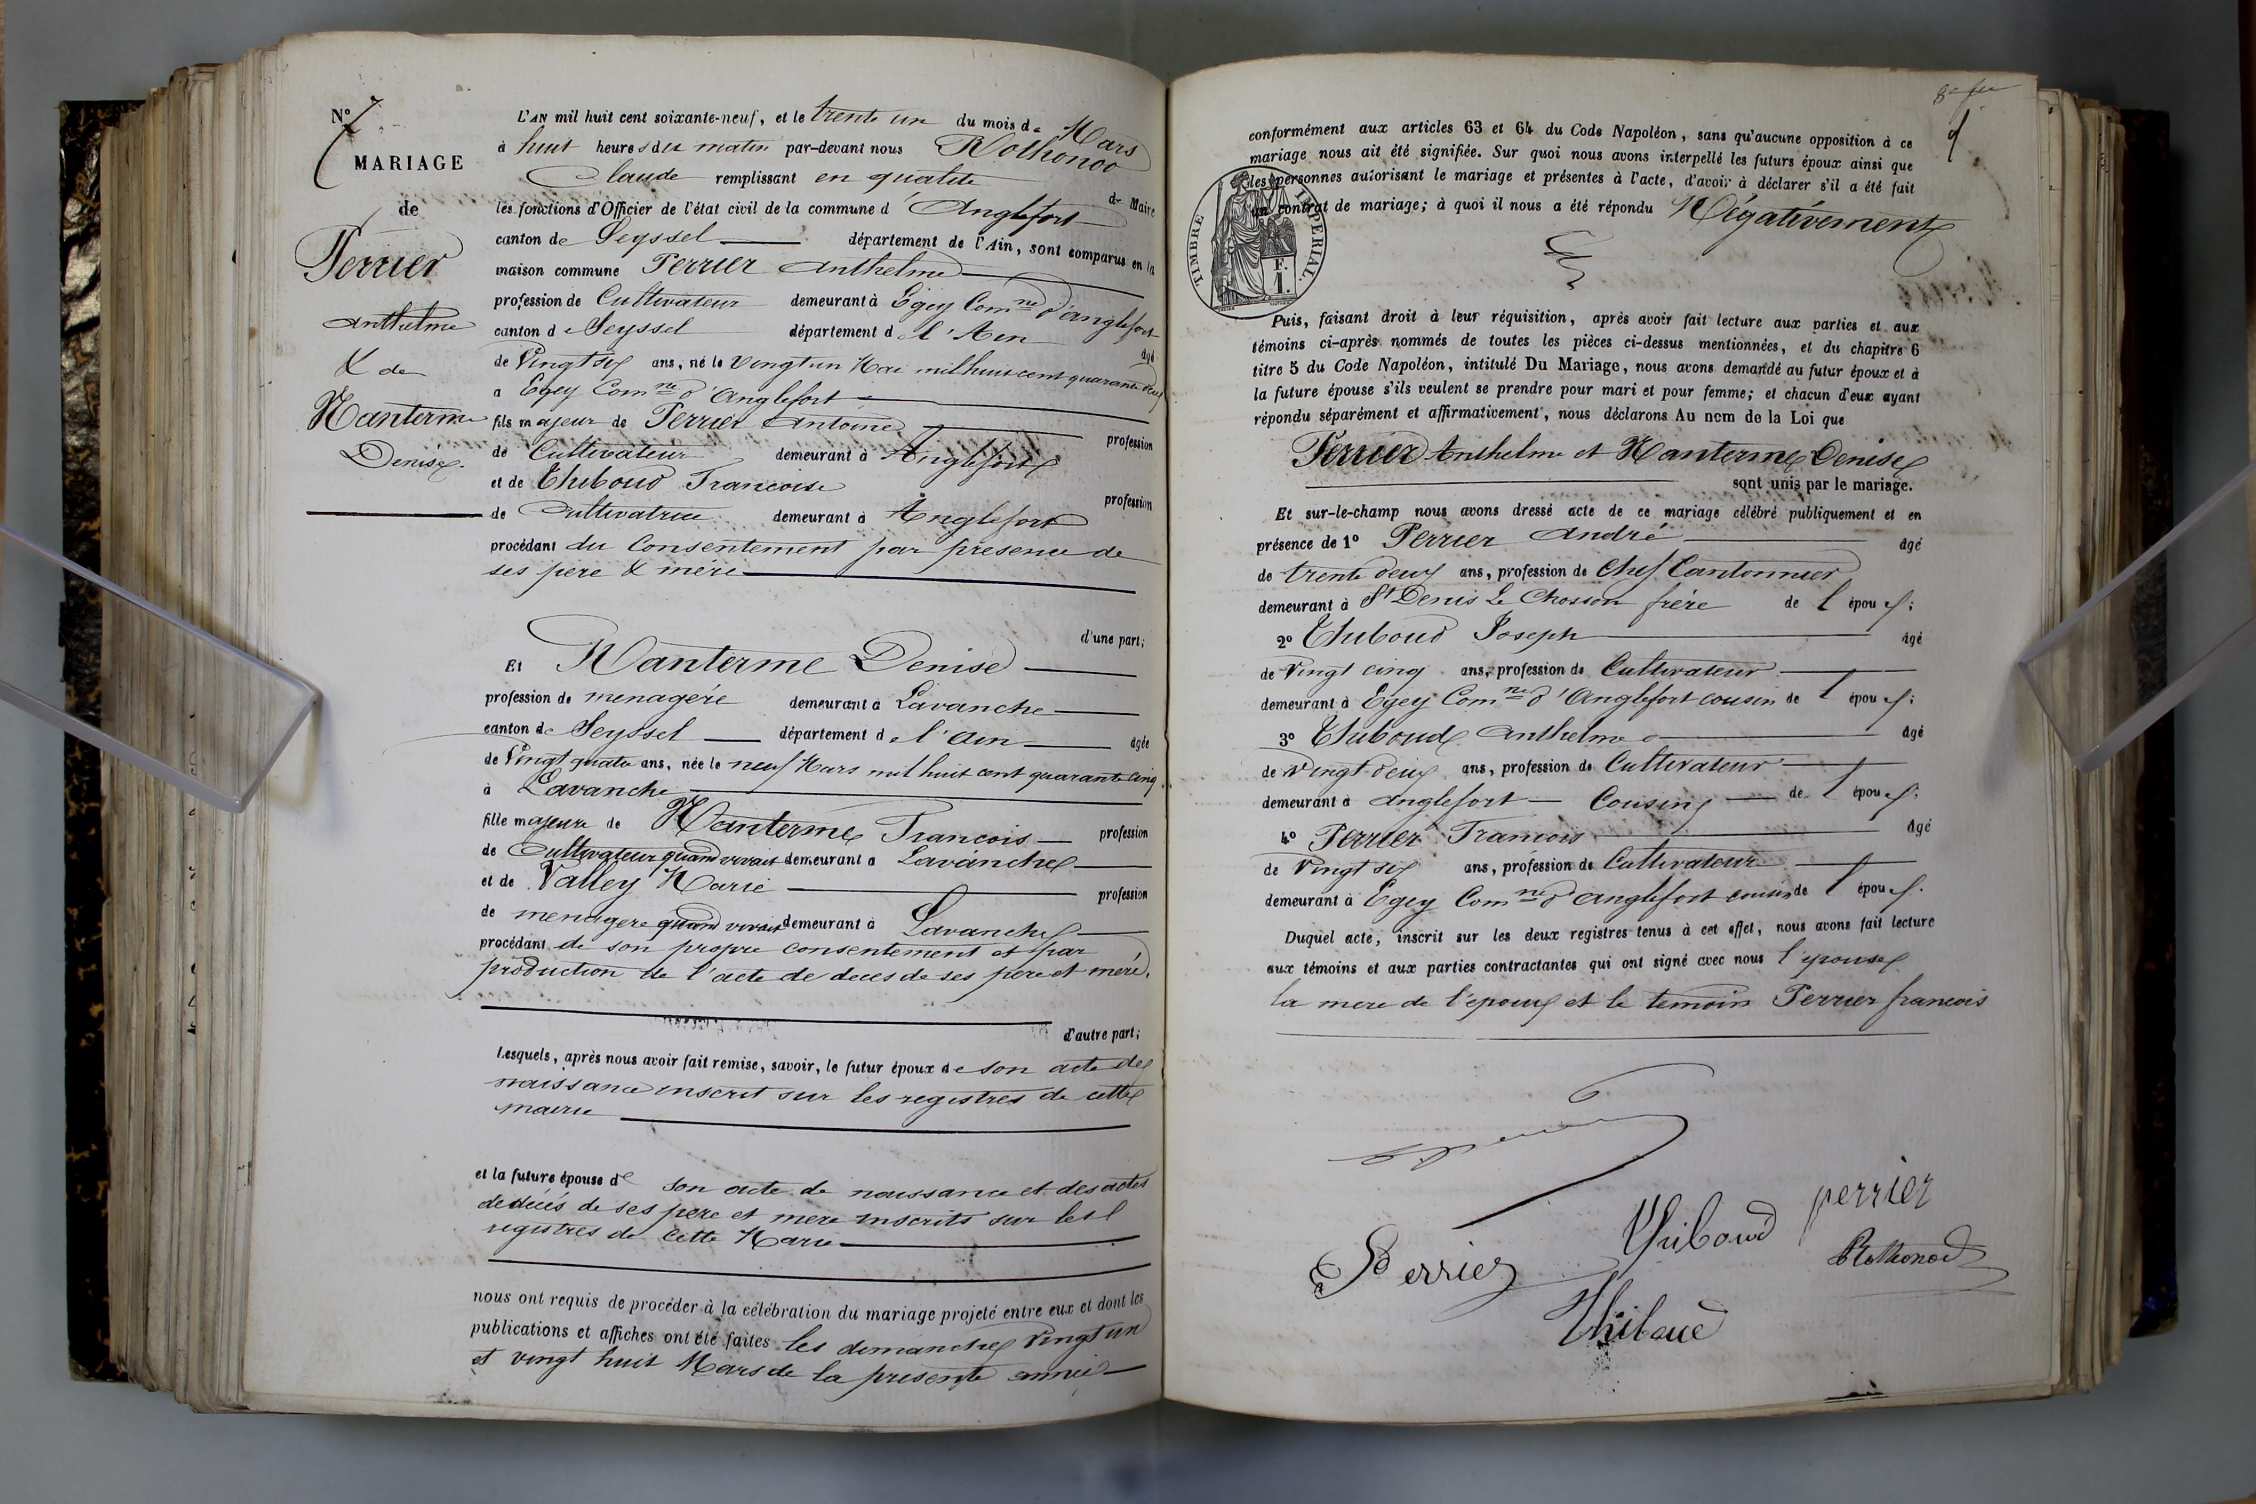 N° 7
MARIAGE
de
Perrier
Anthelme
& de
Nanterme
Denise.
L'AN mil huit cent soixante-neuf, et le trente un du mois de Mars
à huit heures du matin par-devant nous Rothonod
Claude remplissant en qualité de Maire
les fonctions d'Officier de l'état civil de la commune d'Anglefort
canton de Seyssel département de l'Ain, sont comparus en la
maison commune Perrier Anthelme
profession de Cultivateur demeurant à Egey Comne d'anglefort
canton de Seyssel département de l'Ain âgé
de Vingt six ans, né le Vingt un Mai mil huit cent quarante deux
a Egey Comne d'Anglefort
fils majeur de Perrier Antoine profession
de Cultivateur demeurant à Anglefort
et de Thiboud Francoise profession
de Cultivatrice demeurant à Anglefort
procédant du Consentement par presence de
ses père & mère
d'une part;
Et Nanterme Denise
profession de menagere demeurant à Lavanche
canton de Seyssel département de l'ain âgée
de Vingt quatre ans, née le neuf Mars mil huit cent quarante cinq
à Lavanche
fille majeure de Nanterme Francois profession
de Cultivateur quand vivait demeurant a Lavanche
et de Valley Marie profession
de menagere quand vivait demeurant à Lavanche
procédant de son propre consentement et par
production de l'acte de deces de ses pere et mere.
d'autre part;
Lesquels, après nous avoir fait remise, savoir, le futur époux de son acte de
naissance inscrit sur les registres de cette
mairie
et la future épouse de son acte de naissance et des actes
de décés de ses pere et mere inscrits sur les
registres de cette Marie
nous ont requis de procéder à la célébration du mariage projeté entre eux et dont les
publications et affiches ont été faites les dimanches Vingt un
et vingt huit Mars de la présente année
conformément aux articles 63 et 64 du Code Napoléon, sans qu'aucune opposition à ce
mariage nous ait été signifiée. Sur quoi nous avons interpellé les futurs époux ainsi que
les personnes autorisant le mariage et présentes à l'acte, d'avoir à déclarer s'il a été fait
un contrat de mariage; à quoi il nous a été répondu Négativement
TIMBRE IMPERIAL.
F.
1.
Puis, faisant droit à leur réquisition, après avoir fait lecture aux parties et aux
témoins ci-après nommés de toutes les pièces ci-dessus mentionnées, et du chapitre 6
titre 5 du Code Napoléon, intitulé Du Mariage, nous avons demandé au futur époux et à
la future épouse s'ils veulent se prendre pour mari et pour femme; et chacun d'eux ayant
répondu séparément et affirmativement, nous déclarons Au nom de la Loi que
Perrier Anthelme et Nanterme Denise
sont unis par le mariage.
Et sur-le-champ nous avons dressé acte de ce mariage célébré publiquement et en
présence de 1° Perrier André âgé
de trente deux ans, profession de Chef Cantonnier
demeurant à St Denis Le Chosson frère de l'époux;
2° Thiboud Joseph âgé
de Vingt cinq ans, profession de Cultivateur
demeurant à Egey Comne d'Anglefort cousin de l'époux;
3° Thiboud Anthelme âgé
de Vingt-deux ans, profession de Cultivateur
demeurant à Anglefort Cousin de l'époux;
4° Perrier Francois âgé
de Vingt six ans, profession de Cultivateur
demeurant à Egey Comne d'anglefort cousin de l'époux.
Duquel acte, inscrit sur les deux registres tenus à cet effet, nous avons fait lecture
aux témoins et aux parties contractantes qui ont signé avec nous l'epouse
la mere de l'époux et le temoin Perrier francois
Perrier
Thiboud
perrier
Rothonod
Thiboud